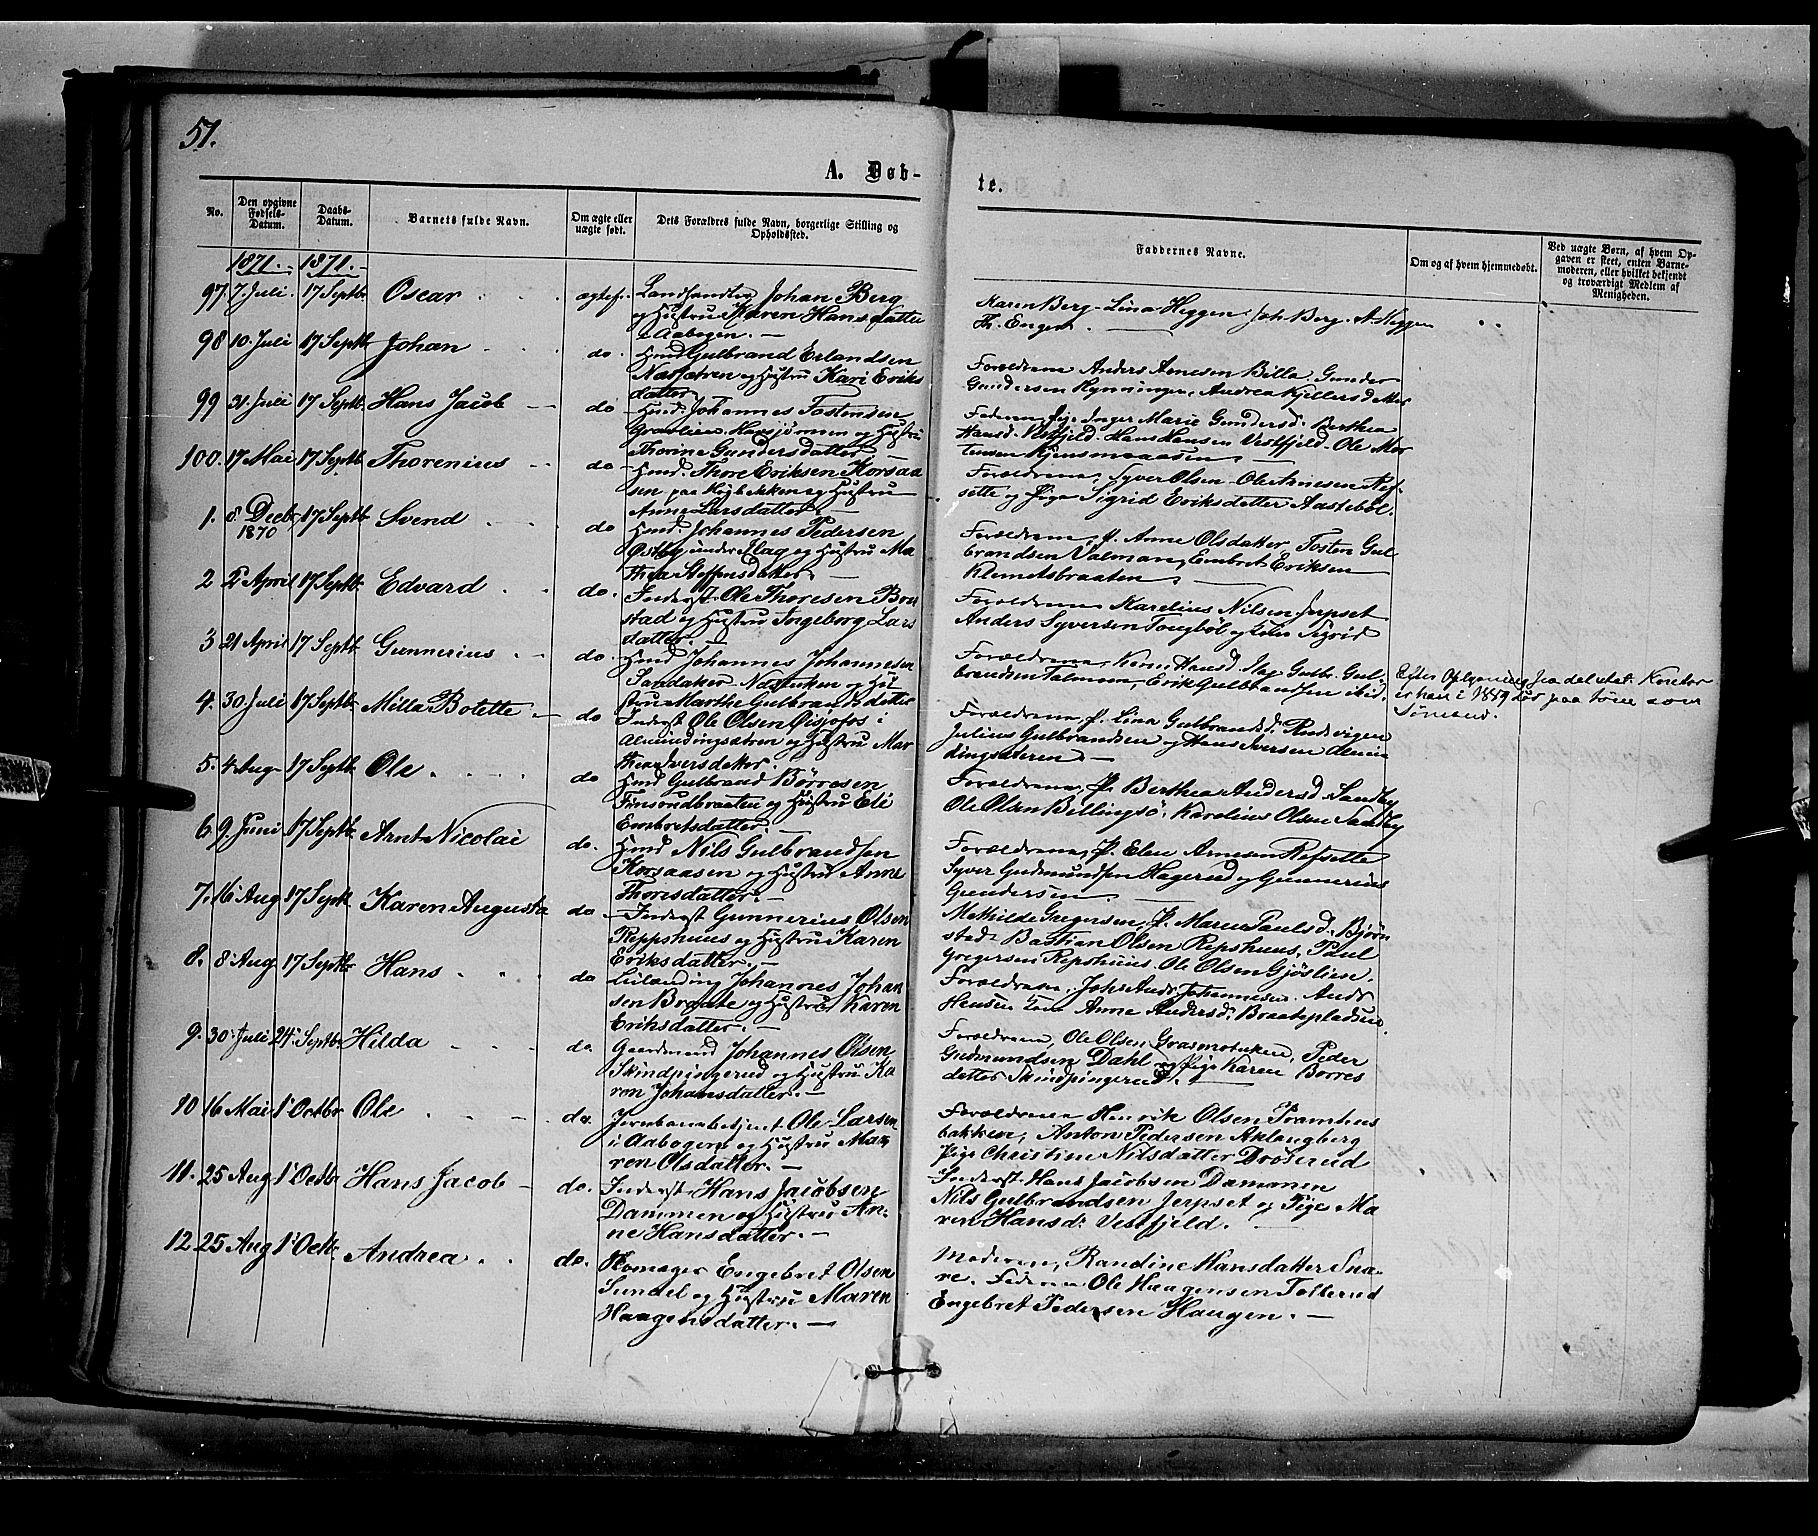 51.
A. Døb-
te.
No.
Den opgivne Fødsels-Datum.
Daabs-Datum.
Barnets fulde Navn.
Om ægte eller uægte født.
Dets Forældres fulde Navn, borgerlige Stilling og Opholdssted.
Faddernes Navne.
Om og af hvem hjemmedøbt.
Ved uægte Børn, af hvem Opgaven er skeet, enten Barnemoderen, eller hvilket bekjendt og troværdigt Medlem af Menigheden.
1871. 1871.
97 7 Juli. 17 Septbr Oscar ægtef. Landhandler Johan Berg
og Hustru Karen Hansdatter
i Aabogen. —
Karen Berg - Lina Heggen, Joh. Berg. A. Heggen
Th. Engen. —
98 10 Juli 17 Septb. Johan do. Hmd Gulbrand Erlandsen
Næssetren og Hustru Kari Eriks
datter
Forældrene Anders Arnesen Billa. Gunder
Gundersen Rynningen, Andrea Kjellersd.
99 31 Juli 17 Septb. Hans Jacob do Hmd. Johannes Tostensen
og Hustru
Thorine Gundersdatter
Faderen, Pige Inger Marie Gundersd. Berthea
Hansd. Vestfjeld. Hans Hansen Vestfjeld. Ole Mor
tensen
100. 17 Mai 17 Septb Thorenius do Hmd. Thore Eriksen Korsaa
sen paa Høgbakken og Hustru
Anne Larsdatter. —
Forældrene, Syver Olsen - Ole Arnesen Ref-
sette og Pige Sigrid Eriksdatter Aastebøl.
1. 8 Decbr 1870 17 Septb Svend do Hmd. Johannes Pedersen
Østby under Flag og Hustru Ma
thea Steffensdatter. —
Forældrene, P. Anne Olsdatter, Tosten Gul
brandsen Valmoen, Embret Eriksen
Klemetsbraaten —
2 2 April 17 Septb. Edvard do. Inderst Ole Thoresen Bru
stad og Hustru Ingeborg Lars
datter. —
Forældrene Karelius Nilsen Jerpset
Anders Syversen Tongbøl og Sigrid
3 21 April 17 Septb. Gunnerius do. Hmd Johannes Johannesen
Sandaker og Hu
stru Marthe Gulbrandsdatter
Forældrene, Karen Hansd. Gulb. Gul
brandsen Talmoen, Erik Gulbrandsen ibid.
Efter Oplysning fra det stat. Kontor
er han i 1889 død paa som
Sømand.
4. 30 Juli 17 Septbr Milla Botette do Inderst Ole Olsen Øisjofos i
Almindingsætren og Hustru Mar
thea Iversdatter.
Forældrene, P. Lina Gulbrandsd. Rudsvigen
Julius Gulbrandsen og Hans Iversen Almin
dingsæteren —
5. 4 Aug 17 Septb. Ole do Hmd Gulbrand Børresen
Finsrudbraaten og Hustru Eli
Embretsdatter. —
Forældrene, P. Berthea Andersd. Sandby
Ole Olsen Bellingsø, Karelius Olsen Sandby
6. 9. Juni 17 Septb. Arnt Nicolai do. Hmd Nils Gulbrandsen
Korsaasen og Hustru Anne
Thoresdatter. —
Forældrene, P. Elen Arnesen Refsette
Syver Gudmundsen Hagerud og Gunnerius
Gundersen —
7. 16 Aug 17 Septb Karen Augusta do. Inderst Gunnerius Olsen
Reppshuus og Hustru Karen
Eriksdatter. —
Mathilde Gregersen, P. Maren Paulsd. Bjørn
stad. Bastian Olsen Repshuus, Paul
Gregersen Repshuus. Ole Olsen Gjøslien.
8. 8 Aug 17 Septbr Hans do Leilænding Johannes Johan
sen Braate og Hustru Karen
Eriksdatter. —
Forældrene, Johs Andr. Johannesen. Andr.
Hansen Anne Andersd. Braatepladsen.
9. 30 Juli 24 Septbr Hilda do Gaardmand Johannes Olsen
Skindpingerud og Hustru Ka
ren Johansdatter. —
Forældrene, Ole Olsen Grasmobakken, Peder
Gudmundsen Dahl og Pige Karen Borres
datter Skindpingerud. —
10 16 Mai 1 Octbr Ole do. Jernbanebetjent Ole Larsen
i Aabogen og Hustru Ma
ren Olsdatter. —
Forældrene Henrik Olsen Tramhus
bakken, Anton Pedersen Aklangberg
Pige Christine Nilsdatter Droserud
11. 25 Aug 1 Octbr Hans Jacob do. Inderst Hans Jacobsen
Dammen og Hustru An-
ne Hansdatter. —
Inderst Hans Jacobsen Dammen
Nils Gulbrandsen Jerpset og Pige Ma
ren Hansd. Vestfjeld. —
12. 25 Aug 1 Octbr Andrea do. Skomager Engebret Olsen
Sundel og Hustru Maren
Haagensdatter. —
Moderen, Randine Hansdatter Sna-
re. Faderen Ole Haagensen Tolterud
Engebret Pedersen Haugen. —